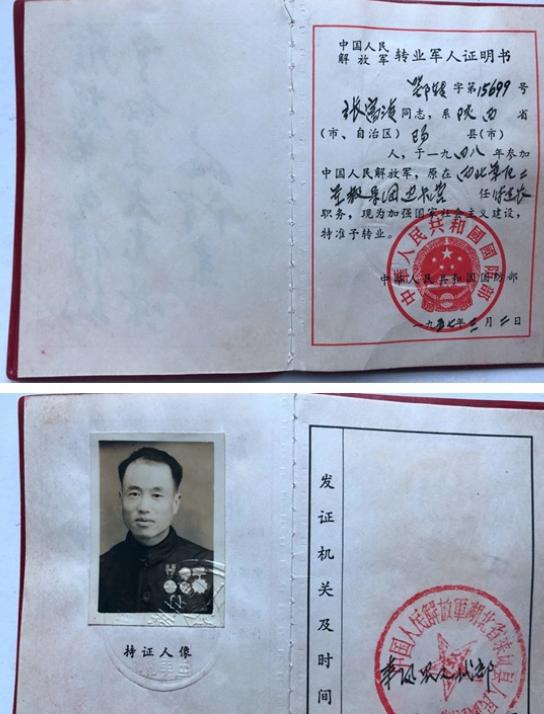 中国人民解放军 转业军人证明书
鄂转字第15699号
张富清同志，系陕西省
（市、自治区） 县（市）
人，于一九四八年参加
中国人民解放军，原在
任
职务，现为加强国家社会主义建设，
特准予转业。
中华人民共和国国防部
中华人民共和國國防部
一九五七年 月二日
持证人像
发证机关及时间
中国人民解放軍湖北省来凤县人民